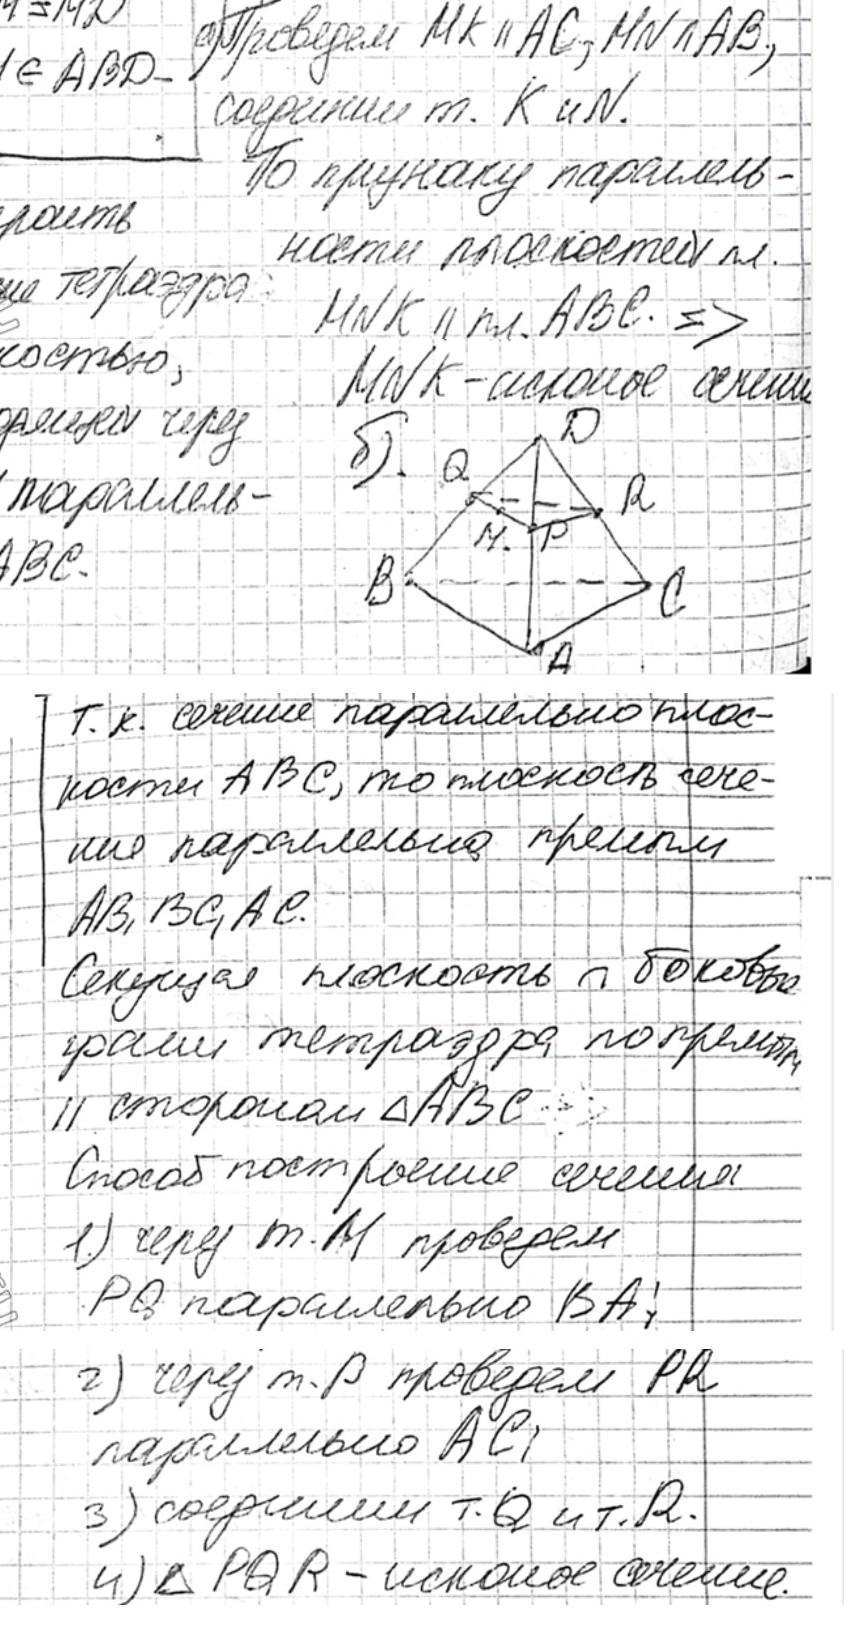 M = MD
M ∈ ABD
роить
ие тетраэдра
костью,
дящей через
параллель-
ABC.
а) Проведем MK || AC, MN || AB,
соединим т. K и N.
По признаку параллель-
ности плоскостей пл.
MNK || пл. ABC. =>
MNK - искомое сечение
б).
D
Q
R
M.
P
B
C
A
Т.к. сечение параллельно плос-
кости ABC, то плоскость сече-
ние параллельна прямым
AB, BC, AC.
Секущая плоскость ∩ боковые
грани тетраэдра по прямым
|| сторонам △ABC
Способ построение сечения
1.) через т. M проведем
PQ параллельно BA;
2) через т. P проведем PR
параллельно AC;
3) соединим т. Q и т. R.
4) △ PQR - искомое сечение.